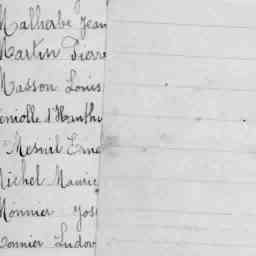 Malherbe Jean
Martin Pierre
Masson Louis
Mesnil Erne
Michel Mauric
Monnier Jos
Monnier Ludov